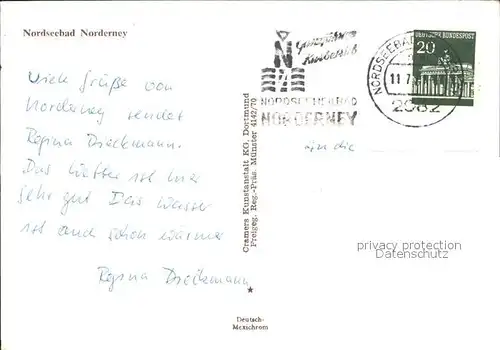 Nordseebad Norderney
Viele Grüße von
Norderney sendet
Regina Dieckmann.
Das Wetter ist hier
sehr gut Das Wasser
ist auch schon wärmer
Regina Dieckmann
Cramers Kunstanstalt KG. Dortmund
Freigeg. Reg.-Präs. Münster 4142/70
Deutsch-
Mexichrom
Ganzjähriger
Kurbetrieb
NORDSEEHEILBAD
NORDERNEY
NORDSEEBAD
11.7.
2982
DEUTSCHE BUNDESPOST
20
An die
privacy protection
Datenschutz